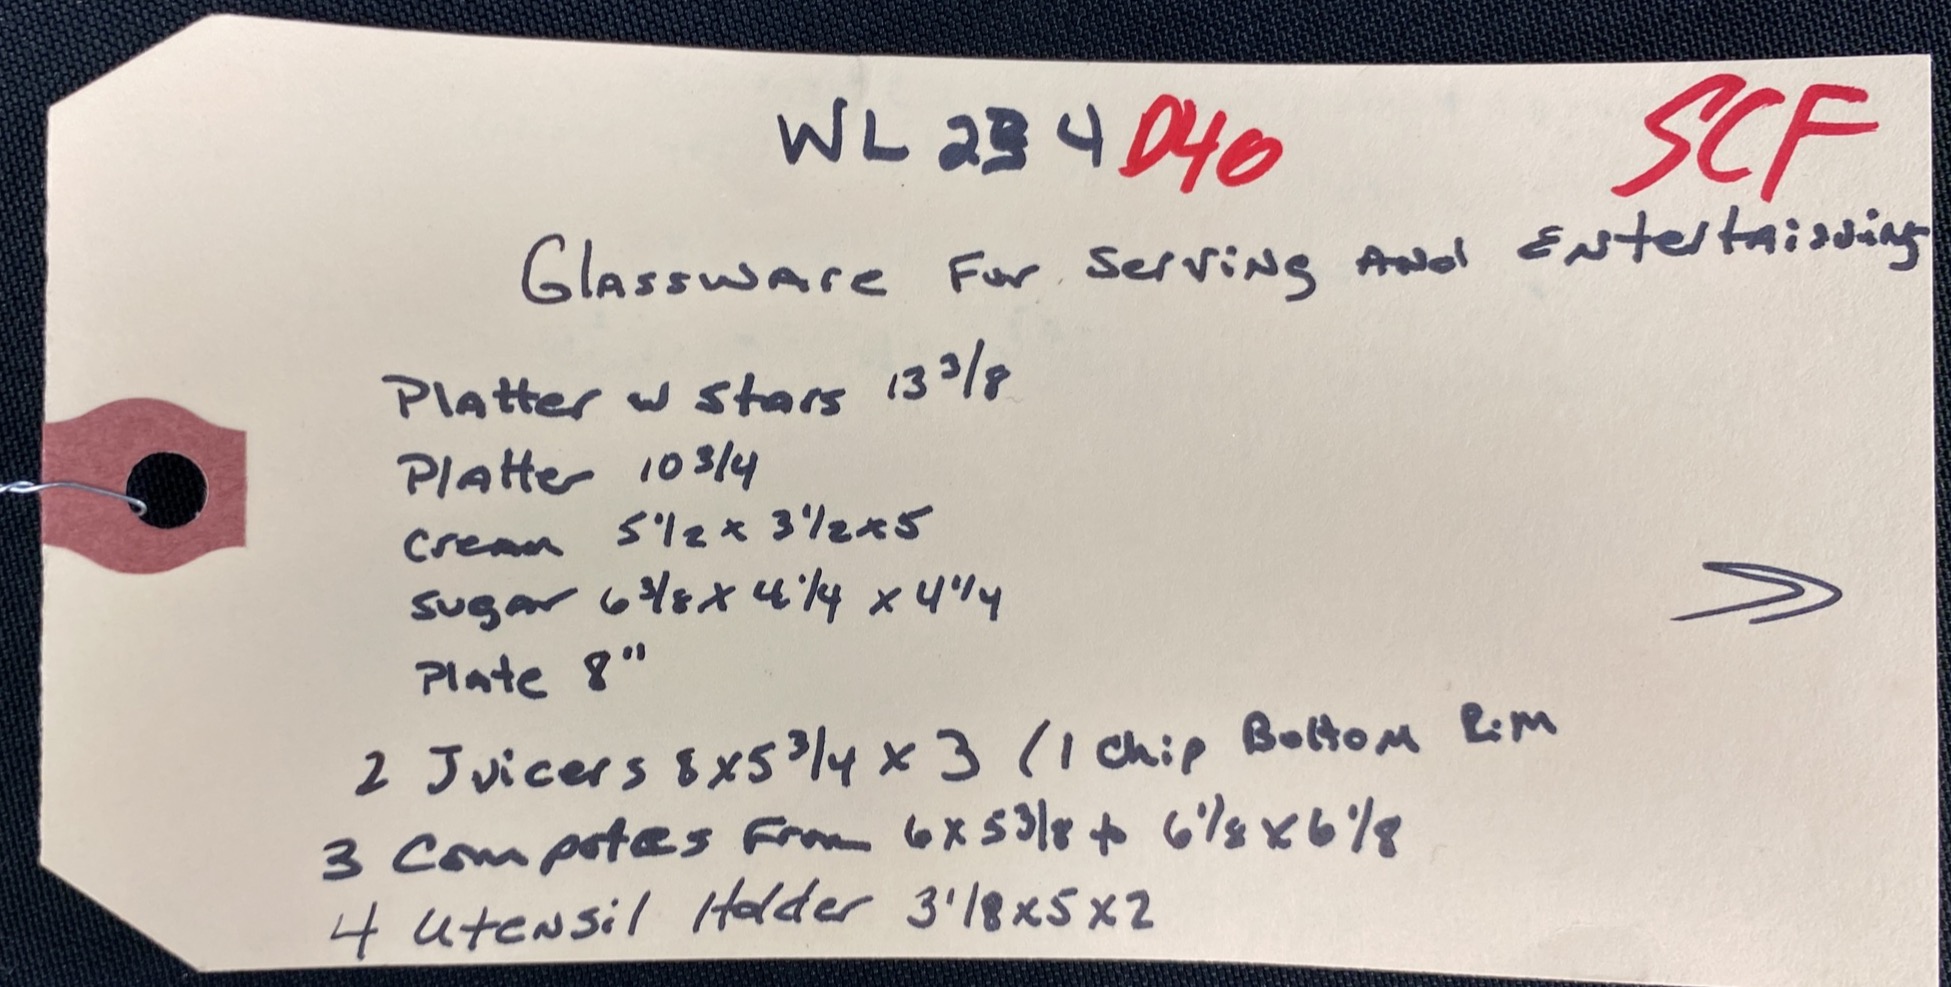 WL 234 D40 SCF
Glassware For Serving And Entertaining
Platter w Stars 13 3/8
Platter 10 3/4
Cream 5 1/2 x 3 1/2 x 5
Sugar 6 3/8 x 4 1/4 x 4 1/4
Plate 8"
2 Juicers 8 x 5 3/4 x 3 (1 Chip Bottom Rim
3 Compotes From 6 x 5 3/8 to 6 1/8 x 6 1/8
4 Utensil Holder 3 1/8 x 5 x 2